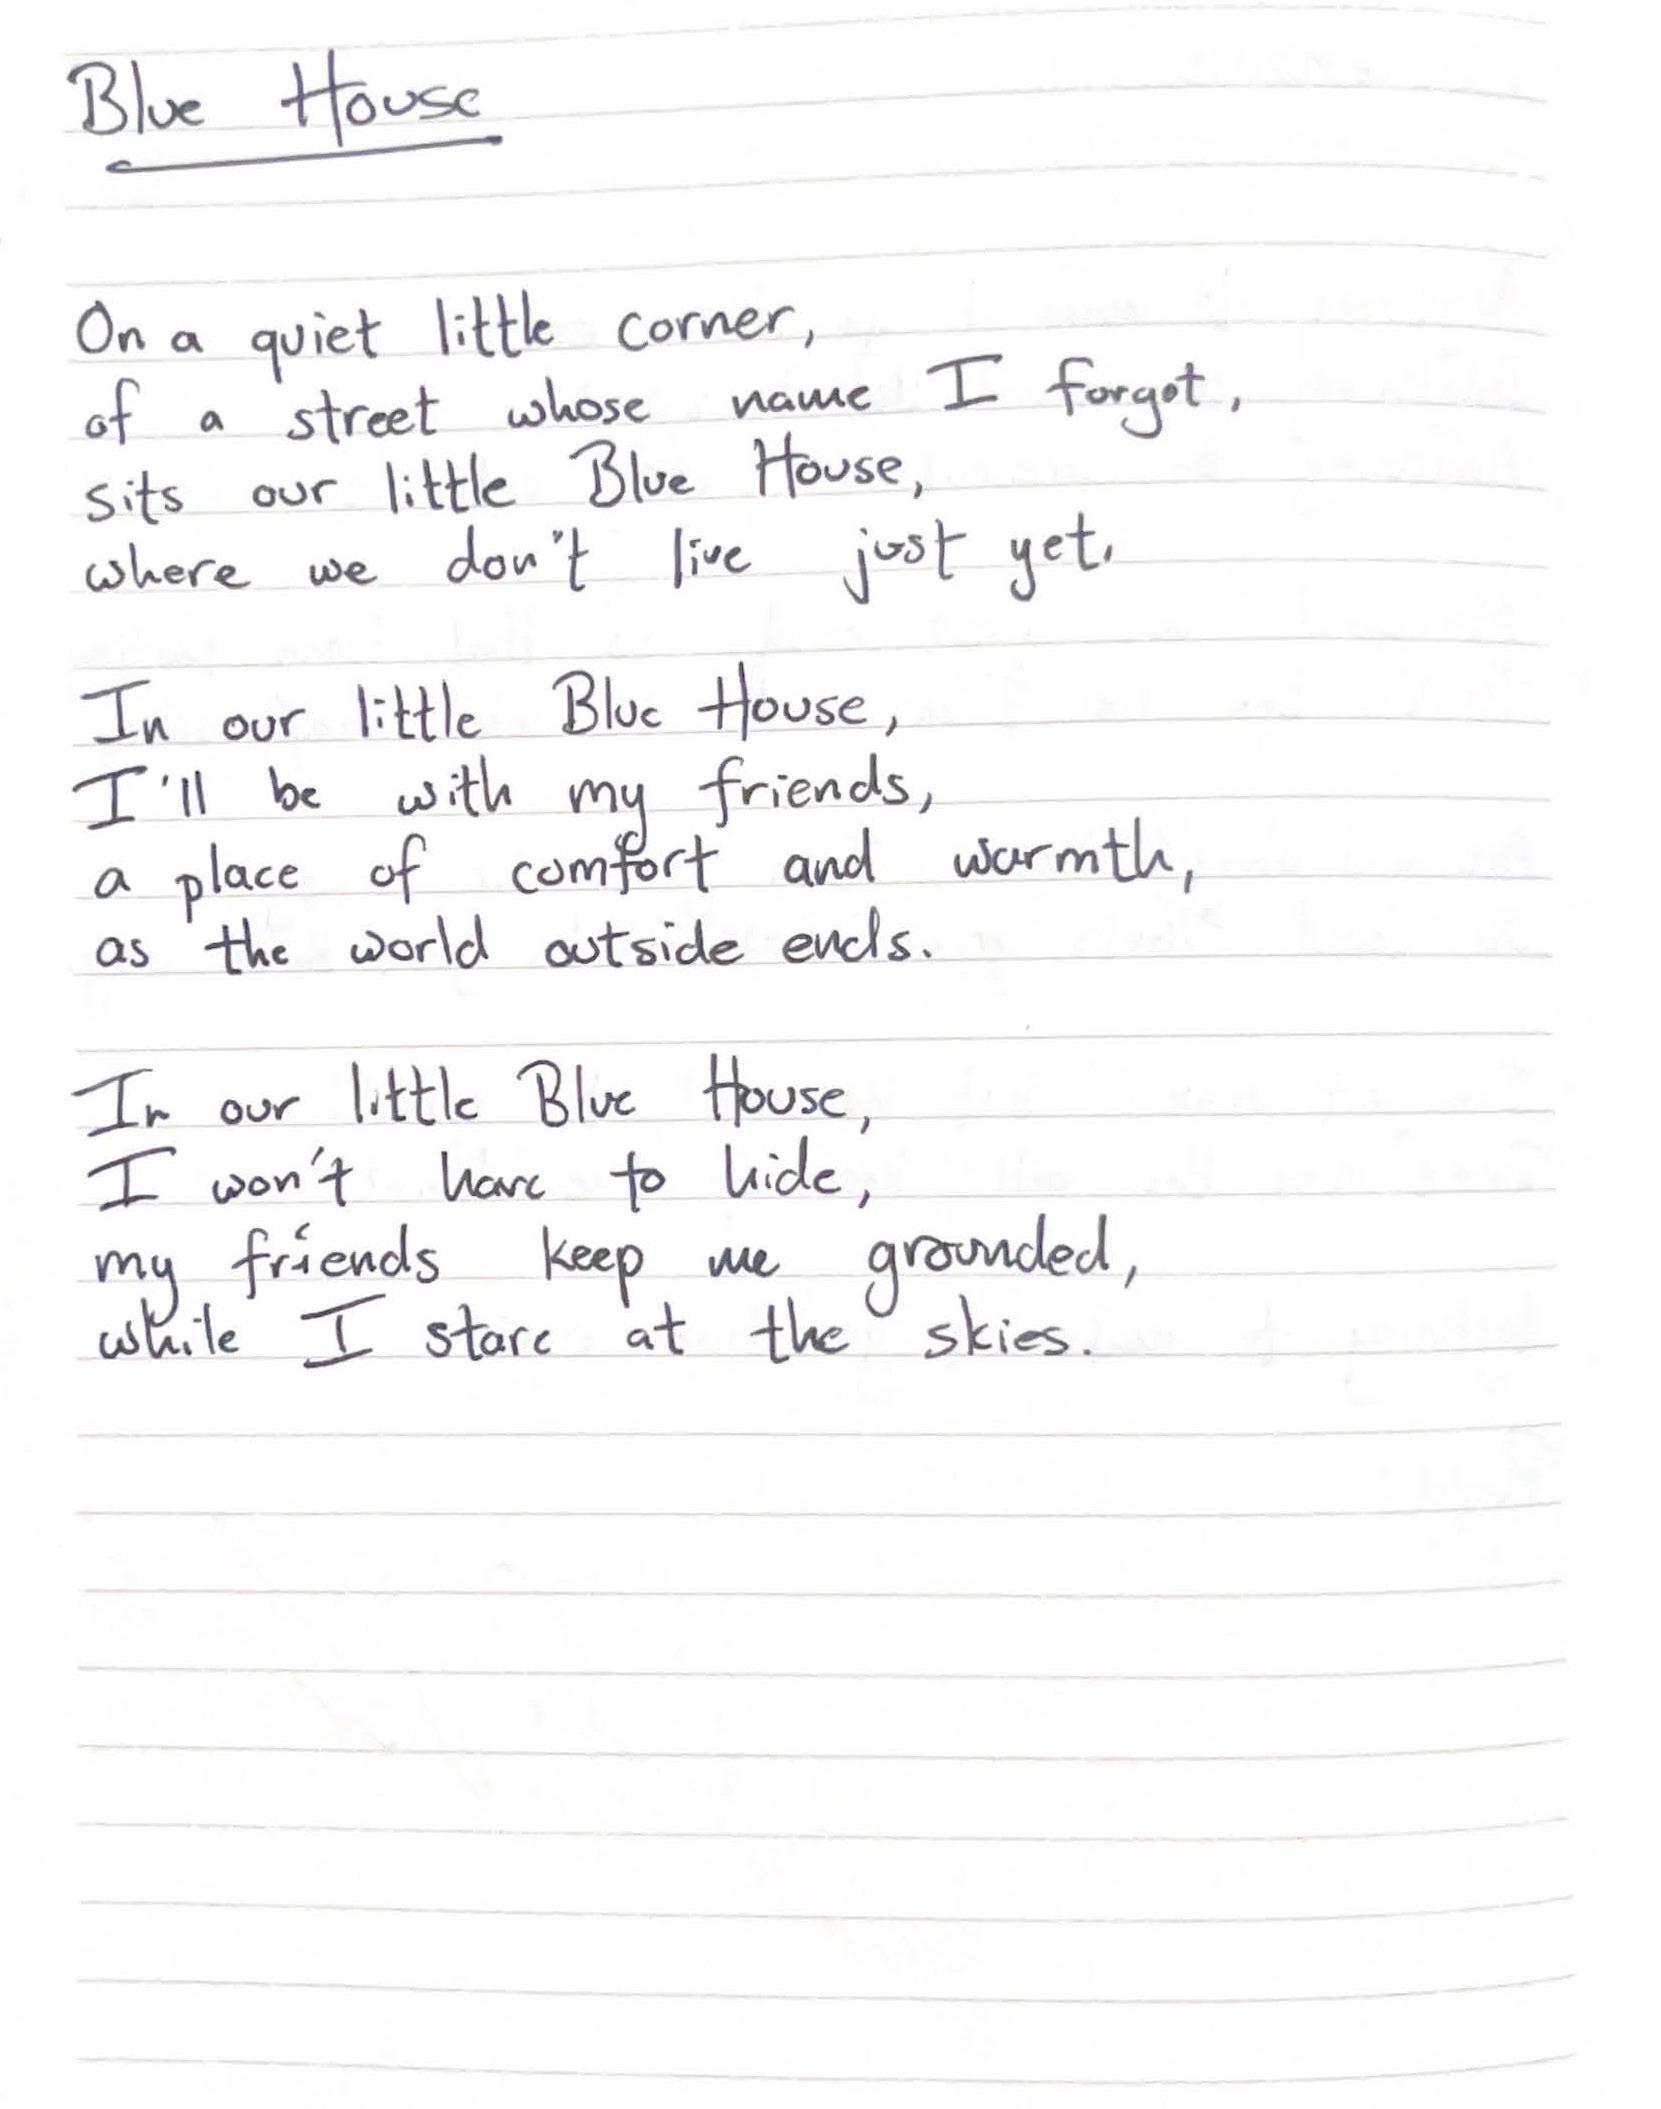 Blue House
On a quiet little corner,
of a street whose name I forgot,
sits our little Blue House,
where we don't live just yet.
In our little Blue House,
I'll be with my friends,
a place of comfort and warmth,
as the world outside ends.
In our little Blue House,
I won't have to hide,
my friends keep me grounded,
while I stare at the skies.